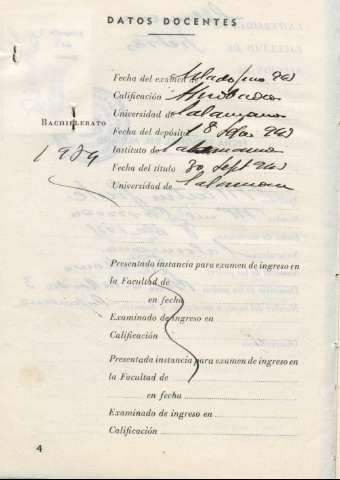 DATOS DOCENTES
Fecha del examen
Calificación
Universidad de Salamanca
BACHILLERATO
Fecha del depósito 18
Instituto de Salamanca
Fecha del título 30 Sept 940
Universidad de Salamanca
Presentada instancia para examen de ingreso en
la Facultad de
en fecha
Examinado de ingreso en
Calificación
Presentada instancia para examen de ingreso en
la Facultad de
en fecha
Examinado de ingreso en
Calificación
4